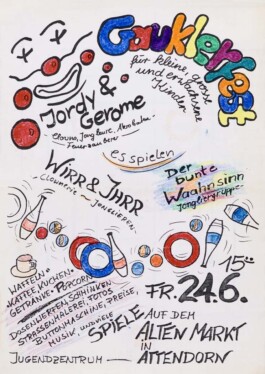 Gauklerfest
für kleine, grosse
und erwachsene
Kinder
Jordy &
Gerome
Clowns, Jongleure, Akrobaten
Feuerzauberer
es spielen
Wirr & Jhrr
Clownerie – Jonglieren
Der
bunte
Waahnsinn
Jonglier-gruppe
WAFFELN
KAFFEE, KUCHEN
GETRÄNKE POPCORN
DOSENWERFEN, SCHMINKEN
STRASSENMALEREI, FOTOS
BUTTONMASCHINE, PREISE,
MUSIK, und viele SPIELE
15 00
FR. 24.6.
AUF DEM
ALTEN MARKT
IN
ATTENDORN
JUGENDZENTRUM